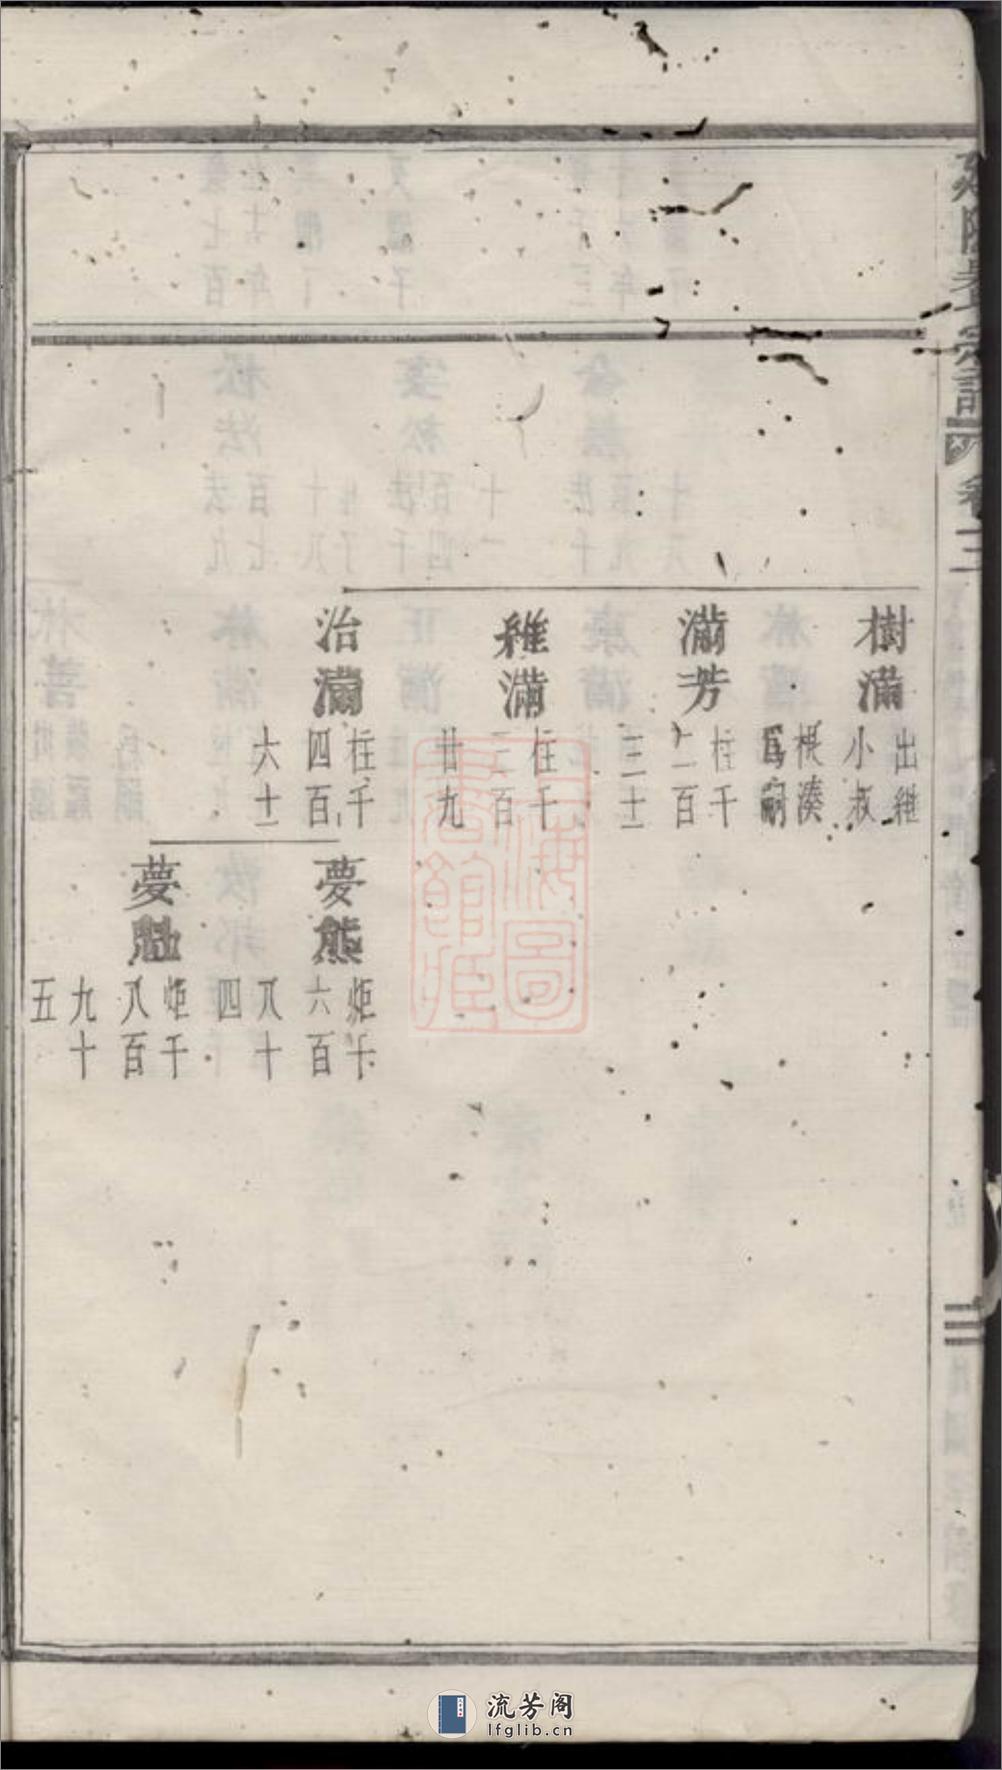 宗譜
卷三
樹滿
出繼
小叔
根湊
爲嗣
滿芳
柱千
二百
三十
維滿
柱千
三百
廿九
治滿
柱千
四百
六十
夢熊
炬千
六百
八十
四
夢魁
炬千
八百
九十
五
上海圖
書館藏
流芳阁
lfglib.cn